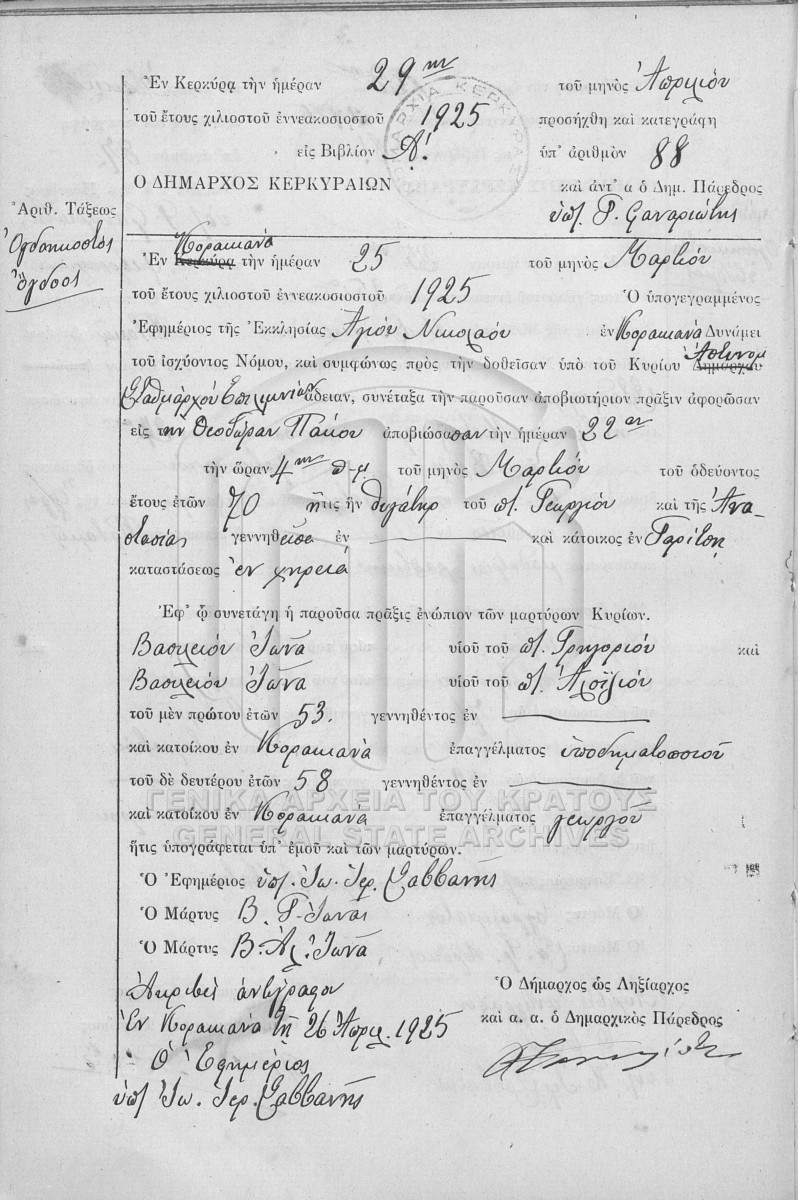 Ἐν Κερκύρᾳ τὴν ἡμέραν 29ην τοῦ μηνὸς Ἀπριλίου
τοῦ ἔτους χιλιοστοῦ ἐννεακοσιοστοῦ 1925 προσήχθη καὶ κατεγράφη
εἰς Βιβλίον Α! ὑπ' ἀριθμὸν 88
Ο ΔΗΜΑΡΧΟΣ ΚΕΡΚΥΡΑΙΩΝ καὶ ἀντ' α ὁ Δημ. Πάρεδρος
ὑπ. Γ.
Ἀριθ. Τάξεως
Ὀγδοηκοστὸς
Ὄγδοος
Κορακιανᾳ
Ἐν Κερκύρᾳ τὴν ἡμέραν 25 τοῦ μηνὸς Μαρτίου
τοῦ ἔτους χιλιοστοῦ ἐννεακοσιοστοῦ 1925 Ὁ ὑπογεγραμμένος
Ἐφημέριος τῆς Ἐκκλησίας Ἁγίου Νικολάου ἐν Κορακιανᾳ Δυνάμει
τοῦ ἰσχύοντος Νόμου, καὶ συμφώνως πρὸς τὴν δοθεῖσαν ὑπὸ τοῦ Κυρίου Δημάρχου Ἀστυνομ
Σταθμάρχου ἄδειαν, συνέταξα τὴν παροῦσαν ἀποβιωτήριον πρᾶξιν ἀφορῶσαν
εἰς την Θεοδώραν Πάκου ἀποβιώσασαν τὴν ἡμέραν 22αν
τὴν ὥραν 4ην π-μ τοῦ μηνὸς Μαρτίου τοῦ ὁδεύοντος
ἔτους ἐτῶν 70 ἥτις ἦν θυγάτηρ τοῦ π. Γεωργίου καὶ τῆς Ἀνα-
στασίας γεννηθεῖσα ἐν καὶ κάτοικος ἐν Γαρίτσῃ
καταστάσεως ἐν χηρείᾳ
Ἐφ' ᾧ συνετάγη ἡ παροῦσα πρᾶξις ἐνώπιον τῶν μαρτύρων Κυρίων.
Βασιλείου Ἰωνᾶ υἱοῦ τοῦ π. Γρηγορίου καὶ
Βασιλείου Ἰωνᾶ υἱοῦ τοῦ π. Ἀλοϊζίου
τοῦ μὲν πρώτου ἐτῶν 53. γεννηθέντος ἐν
καὶ κατοίκου ἐν Κορακιανᾳ ἐπαγγέλματος ὑποδηματοποιοῦ
τοῦ δὲ δευτέρου ἐτῶν 58 γεννηθέντος ἐν
ΓΕΝΙΚΑ ΑΡΧΕΙΑ ΤΟΥ ΚΡΑΤΟΥΣ
καὶ κατοίκου ἐν Κορακιανᾳ ἐπαγγέλματος γεωργοῦ
GENERAL STATE ARCHIVES
ἥτις ὑπογράφεται ὑπ' ἐμοῦ καὶ τῶν μαρτύρων.
Ὁ Ἐφημέριος ὑπ. Ἰω. Ἱερ. Σαββανῆς
Ὁ Μάρτυς Β. Γ. Ἰωνᾶς
Ὁ Μάρτυς Β. Ἀλ. Ἰωνᾶ,
Ἀκριβὲς ἀντίγραφον
Ἐν Κορακιανᾳ τῇ 26 Ἀπριλ. 1925
Ὁ Ἐφημέριος
ὑπ Ἰω. Ἱερ. Σαββανῆς
Ὁ Δήμαρχος ὡς Ληξίαρχος
καὶ α. α. ὁ Δημαρχικὸς Πάρεδρος